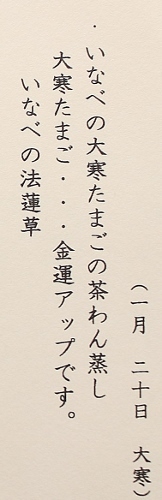 （一月　二十日　大寒）
・いなべの大寒たまごの茶わん蒸し
大寒たまご・・・金運アップです。
いなべの法蓮草